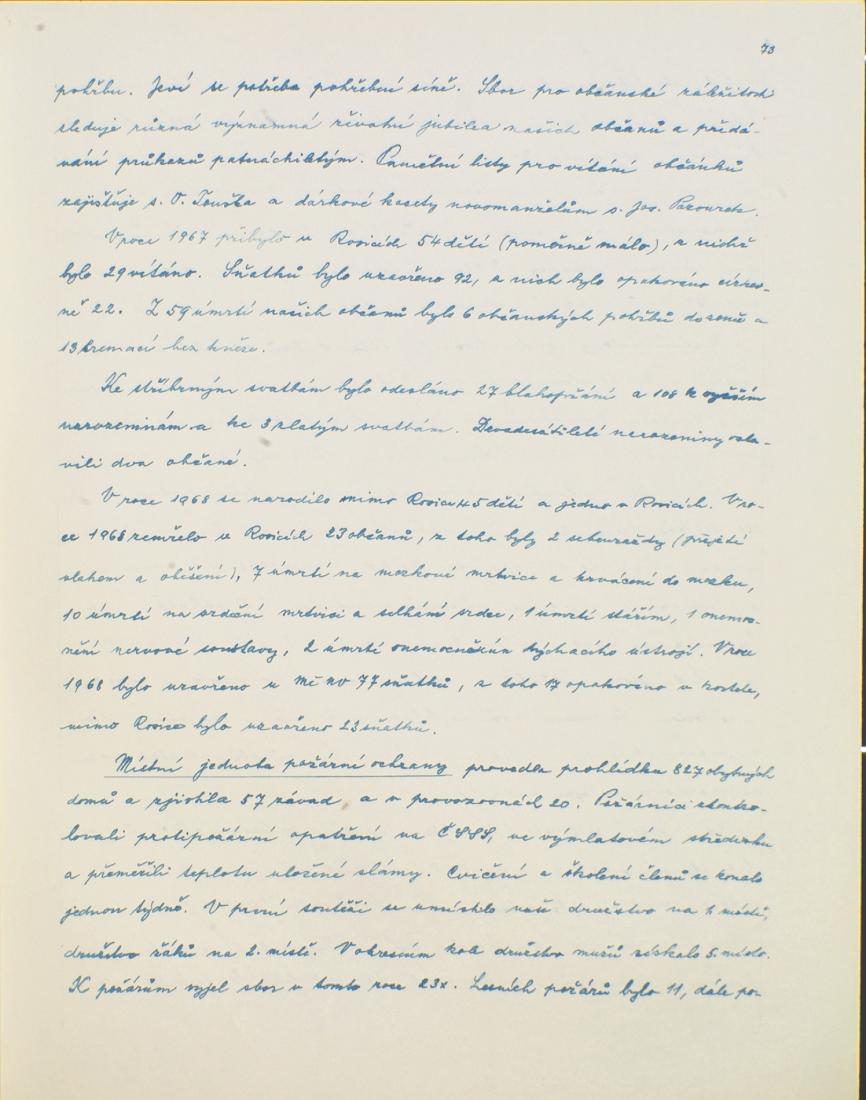 73
pohřbu. Jeví se potřeba pohřební síně. Sbor pro občanské záležitosti
sleduje různá významná životní jubilea našich občanů a předá-
vání průkazů patnáctiletým. Pamětní listy pro vítání občánků
zajišťuje s. O. Touška a dárkové kasety novomanželům s. Jos.
V roce 1967 přibylo v Rosicích 54 dětí (poměrně málo), z nichž
bylo 29 vítáno. Sňatků bylo uzavřeno 92, z nich bylo opakováno církev-
ně 22. Z 59 úmrtí našich občanů bylo 6 občanských pohřbů do země a
13 kremací bez kněze.
Ke stříbrným svatbám bylo odesláno 27 blahopřání a 108 k vyšším
narozeninám a ke 3 zlatým svatbám. Devadesátileté narozeniny osla-
vili dva občané.
V roce 1968 se narodilo mimo Rosice 45 dětí a jedno v Rosicích. V ro-
ce 1968 zemřelo v Rosicích 23 občanů, z toho byly 2 sebevraždy (přejetí
vlakem a oběšení), 7 úmrtí na mozkové mrtvice a krvácení do mozku,
10 úmrtí na srdeční mrtvici a selhání srdce, 1 úmrtí stářím, 1 onemoc-
nění nervové soustavy, 2 úmrtí onemocněním dýchacího ústrojí. V roce
1968 bylo uzavřeno u MěNV 77 sňatků, z toho 17 opakováno v kostele,
mimo Rosice bylo uzavřeno 23 sňatků.
Místní jednota požární ochrany provedla prohlídku 827 obytných
domů a zjistila 57 závad a v provozovnách 20. Požárníci zkontro-
lovali protipožární opatření na ČSSS, ve výmlatovém středisku
a přeměřili teplotu uložené slámy. Cvičení a školení členů se konalo
jednou týdně. V první soutěži se umístilo naše družstvo na 1. místě,
družstvo žáků na 2. místě. V okresním kole družstvo mužů získalo 5. místo.
K požárům vyjel sbor v tomto roce 23x. Lesních požárů bylo 11, dále po-